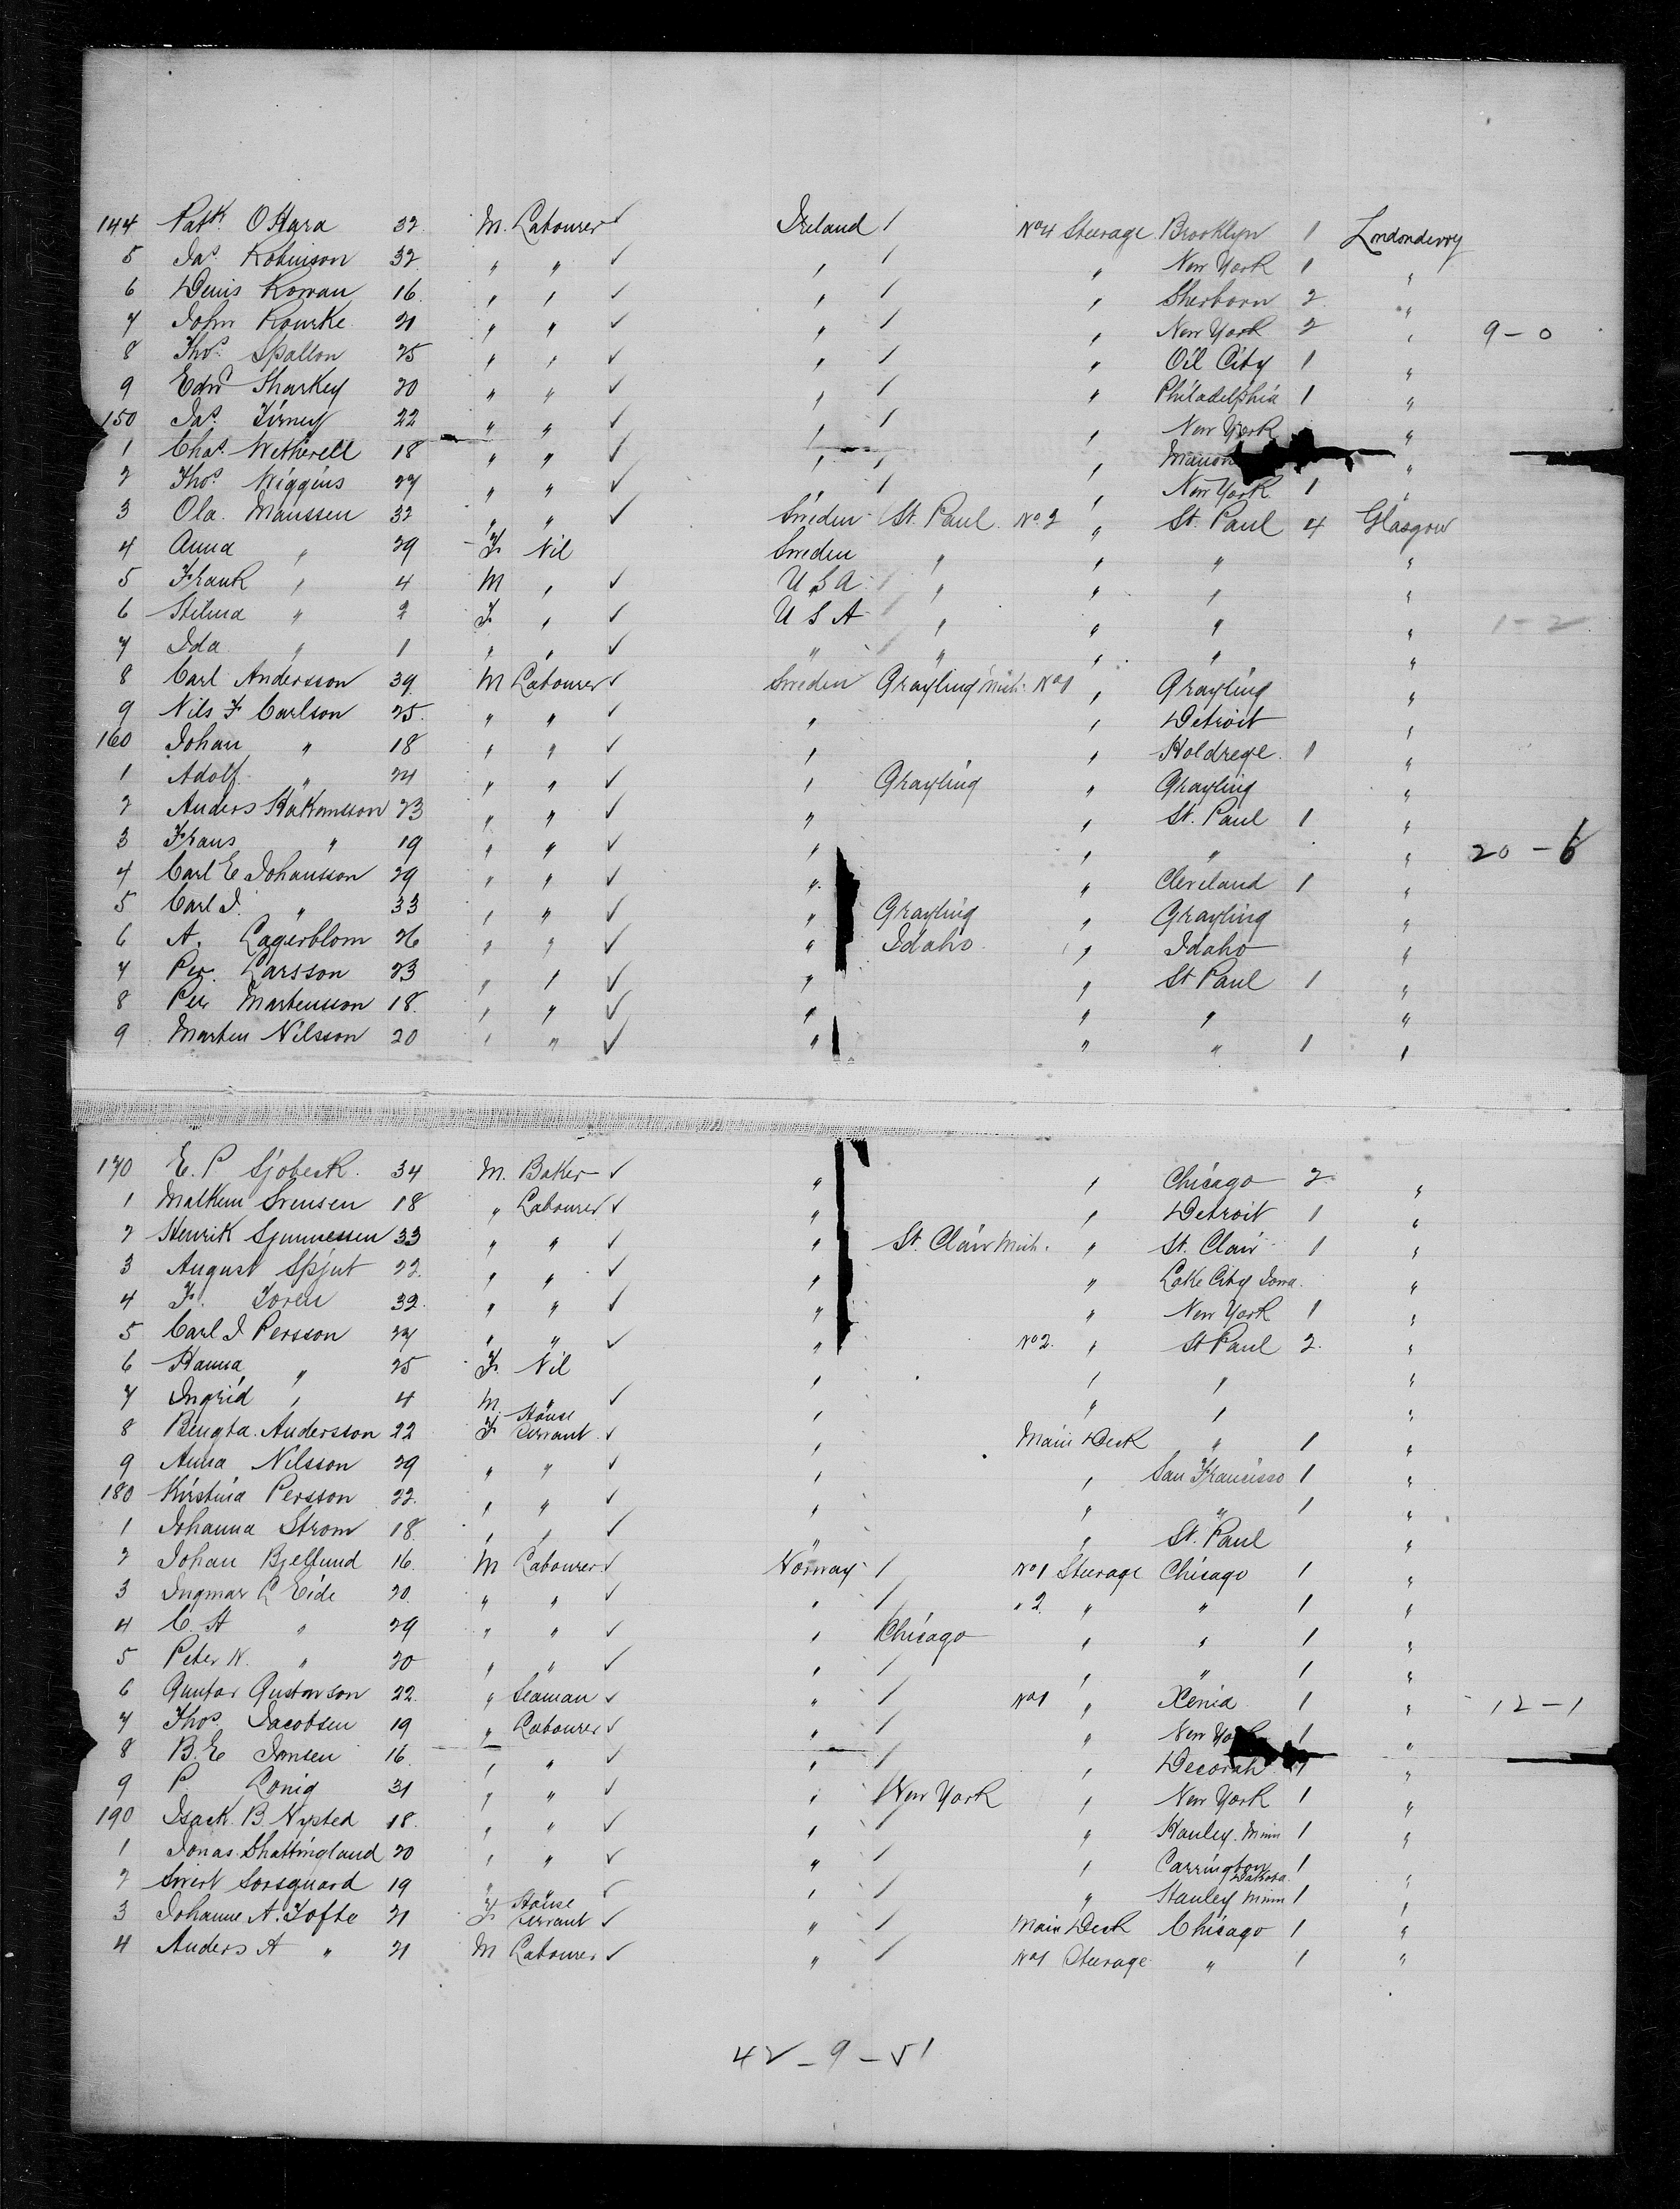 144 Patk. O'Hara 32 M. Labourer ✓ Ireland / No 4 Steerage Brooklyn 1 Londonderry
5 Jas. Robinson 32 " " ✓ " / " New York 1 "
6 Denis Rowan 16 " " ✓ " / " Sherborn 2 "
7 John Rourke 21 " " ✓ " / " New York 2 " 9 - 0
8 Thos. Spallon 25 " " ✓ " / " Oil City 1 "
9 Edwd Sharkey 20 " " ✓ " / " Philadelphia 1 "
150 Jas. Tirney 22 " " ✓ " / " New York "
1 Chas. Wetherell 18 " " ✓ " / " "
2 Thos. Wiggins 27 " " ✓ " / " New York 1 "
3 Ola Manssen 32 " " ✓ Sweden St. Paul No. 2 " St. Paul 4 Glasgow
4 Anna " 29 F Nil Sweden " " " "
5 Frank " 4 M " ✓ U S A " " " "
6 " 2 F " ✓ U S A " " " " 1 - 2
7 Ida " 1 " " ✓ " " " " "
8 Carl Andersson 39 M Labourer ✓ Sweden Grayling Mich. No 1 " Grayling "
9 Nils F Carlson 25 " " ✓ " " Detroit "
160 Johan " 18 " " ✓ " " Holdrege 1 "
1 Adolf " 24 " " ✓ " Grayling " Grayling "
2 Anders Hakansson 23 " " ✓ " " St. Paul 1 "
3 Frans " 19 " " ✓ " " " " 20 - 6
4 Carl E Johansson 29 " " ✓ " " Cleveland 1 "
5 Carl J. " 33 " " ✓ " Grayling " Grayling "
6 A. Lagerblom 26 " " ✓ " Idaho " Idaho "
7 Per Larsson 23 " " ✓ " " St Paul 1 "
8 Per Martensson 18 " " ✓ " " " "
9 Marten Nilsson 20 " " ✓ " " " 1 "
170 E. P Sjobeck 34 M. Baker ✓ " " Chicago 2 "
1 Svensen 18 " Labourer ✓ " " Detroit 1 "
2 Henrik 33 " " ✓ " St. Clair Mich. " St. Clair 1 "
3 August Spjut 22 " " ✓ " " Lake City Iowa "
4 F. Toren 32 " " ✓ " " New York 1 "
5 Carl J Persson 27 " " ✓ " No 2. " St Paul 2. "
6 Hanna " 25 F. Nil " " " "
7 Ingrid " 4 M " ✓ " " " "
8 Bengta Andersson 22 F House Servant ✓ " Main Deck " 1 "
9 Anna Nilsson 29 " " ✓ " " San Francisco 1 "
180 Kirstina Persson 22 " " ✓ " " " 1 "
1 Johanna Strom 18 " " ✓ " " St. Paul "
2 Johan Bjellund 16 M Labourer ✓ Norway / No 1 Steerage Chicago 1 "
3 Ingmar L Eide 20 " " ✓ " / " 2 " " 1 "
4 C. H " 29 " " ✓ " Chicago " " 1 "
5 Peter N. " 20 " " ✓ " / " " 1 "
6 Gustavson 22 " Seaman ✓ " / No 1 " Xenia 1 " 12 - 1
7 Thos. Jacobsen 19 " Labourer ✓ " / " New York 1 "
8 B. E Jansen 16 " " ✓ " / " Decorah 1 "
9 P. Lonig 31 " " ✓ " New York " New York 1 "
190 Isack B. Nysted 18 " " ✓ " / " Hanley Minn 1 "
1 Jonas Shattingland 20 " " ✓ " / " Carrington Dakota 1 "
2 Sivert 19 " ✓ " / " Stanley Minn 1 "
3 Johanne A. Tofte 21 F House Servant ✓ " / Main Deck Chicago 1 "
4 Anders A " 21 M Labourer ✓ " / No 1 Steerage " 1 "
42 - 9 - 51